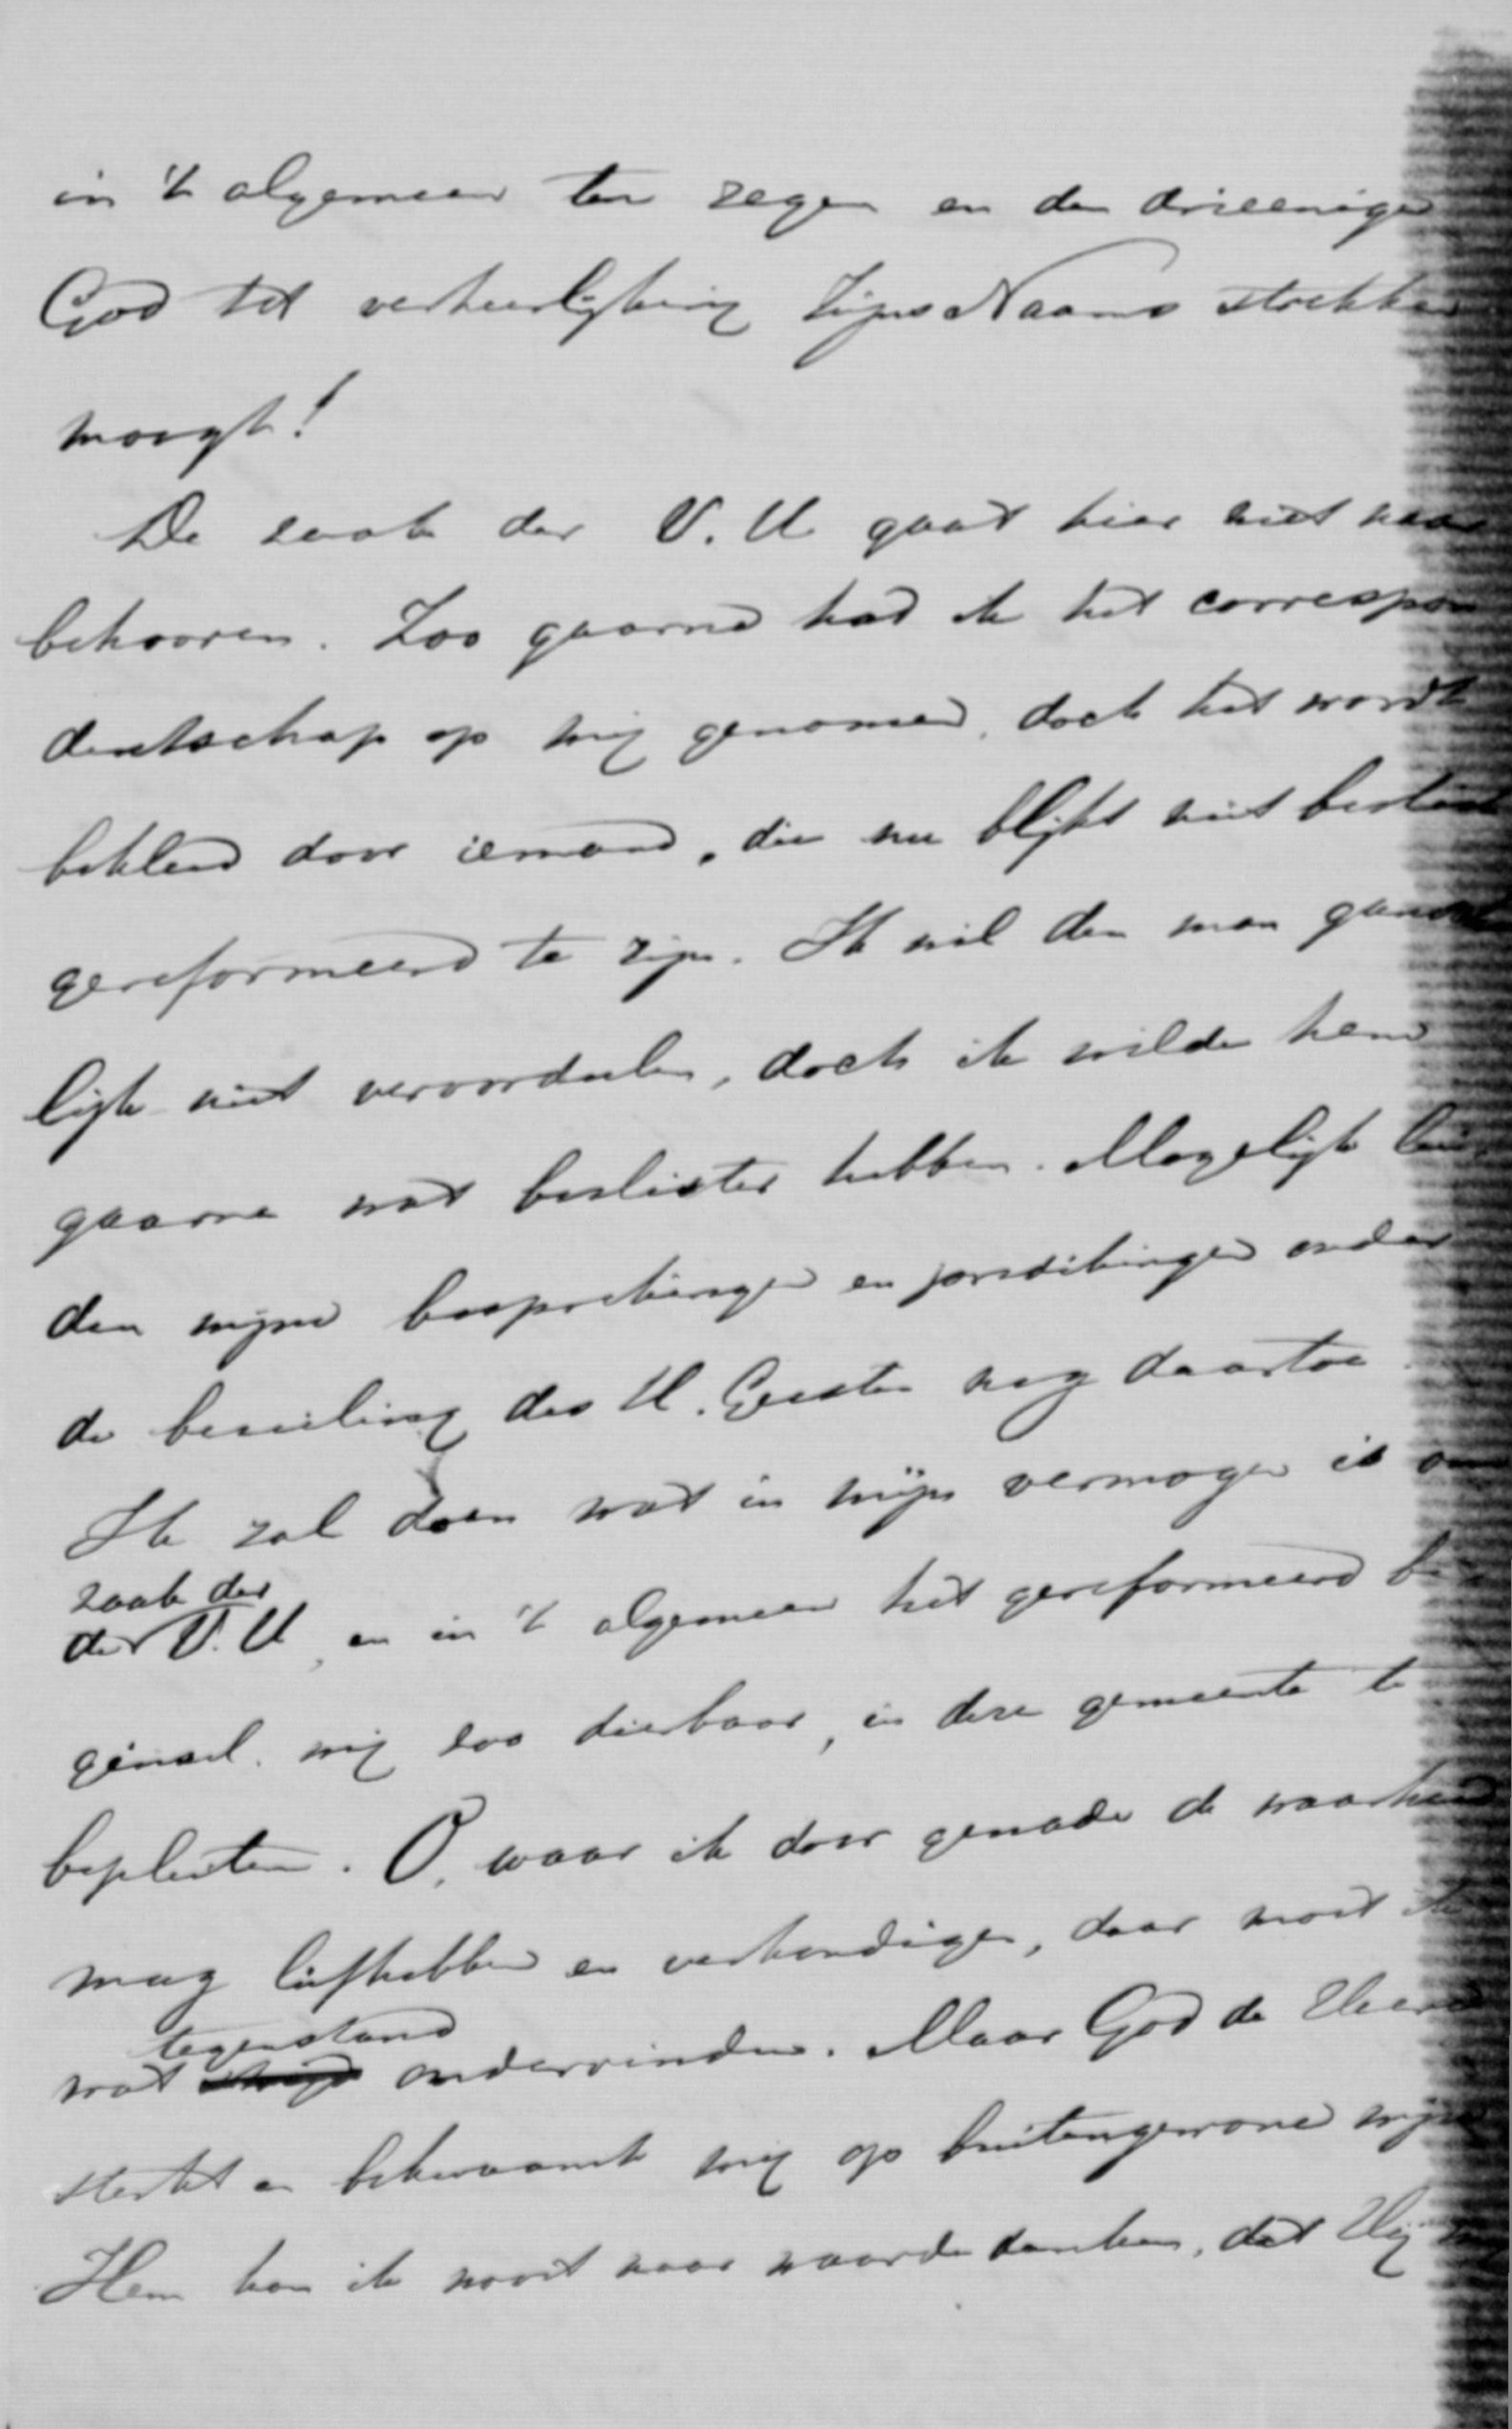 in 't algemeen ten zegen en den drieenigen
God tot verheerlijking Zijns Naams strekken
moogt!
De zaak der V. U. gaat hier niet naar
behooren. Zoo gaarne had ik het correspon
dentschap op mij genomen, doch het wordt
bekleed door iemand, die nu blijkt niet beslist
gereformeerd te zijn. Ik wil den man gansch
lijk niet veroordeelen, doch ik wilde hem
gaarne wat beslister hebben. Mogelijk lei
den mijne besprekingen en predikingen onder
de bezieling des H. Geestes nog daartoe.
Ik zal doen wat in mijn vermogen is om
zaak der
der V. U, en in 't algemeen het gereformeerd be
ginsel, mij zoo dierbaar, in deze gemeente te
bepleiten. O, waar ik door genade de waarheid
mag liefhebben en verkondigen, daar moet ik
tegenstand
wat ondervinden. Maar God de Heere
sterkt en bekwaamt mij op buitengewone wijze
Hem kan ik nooit naar waarde danken, dat Hij